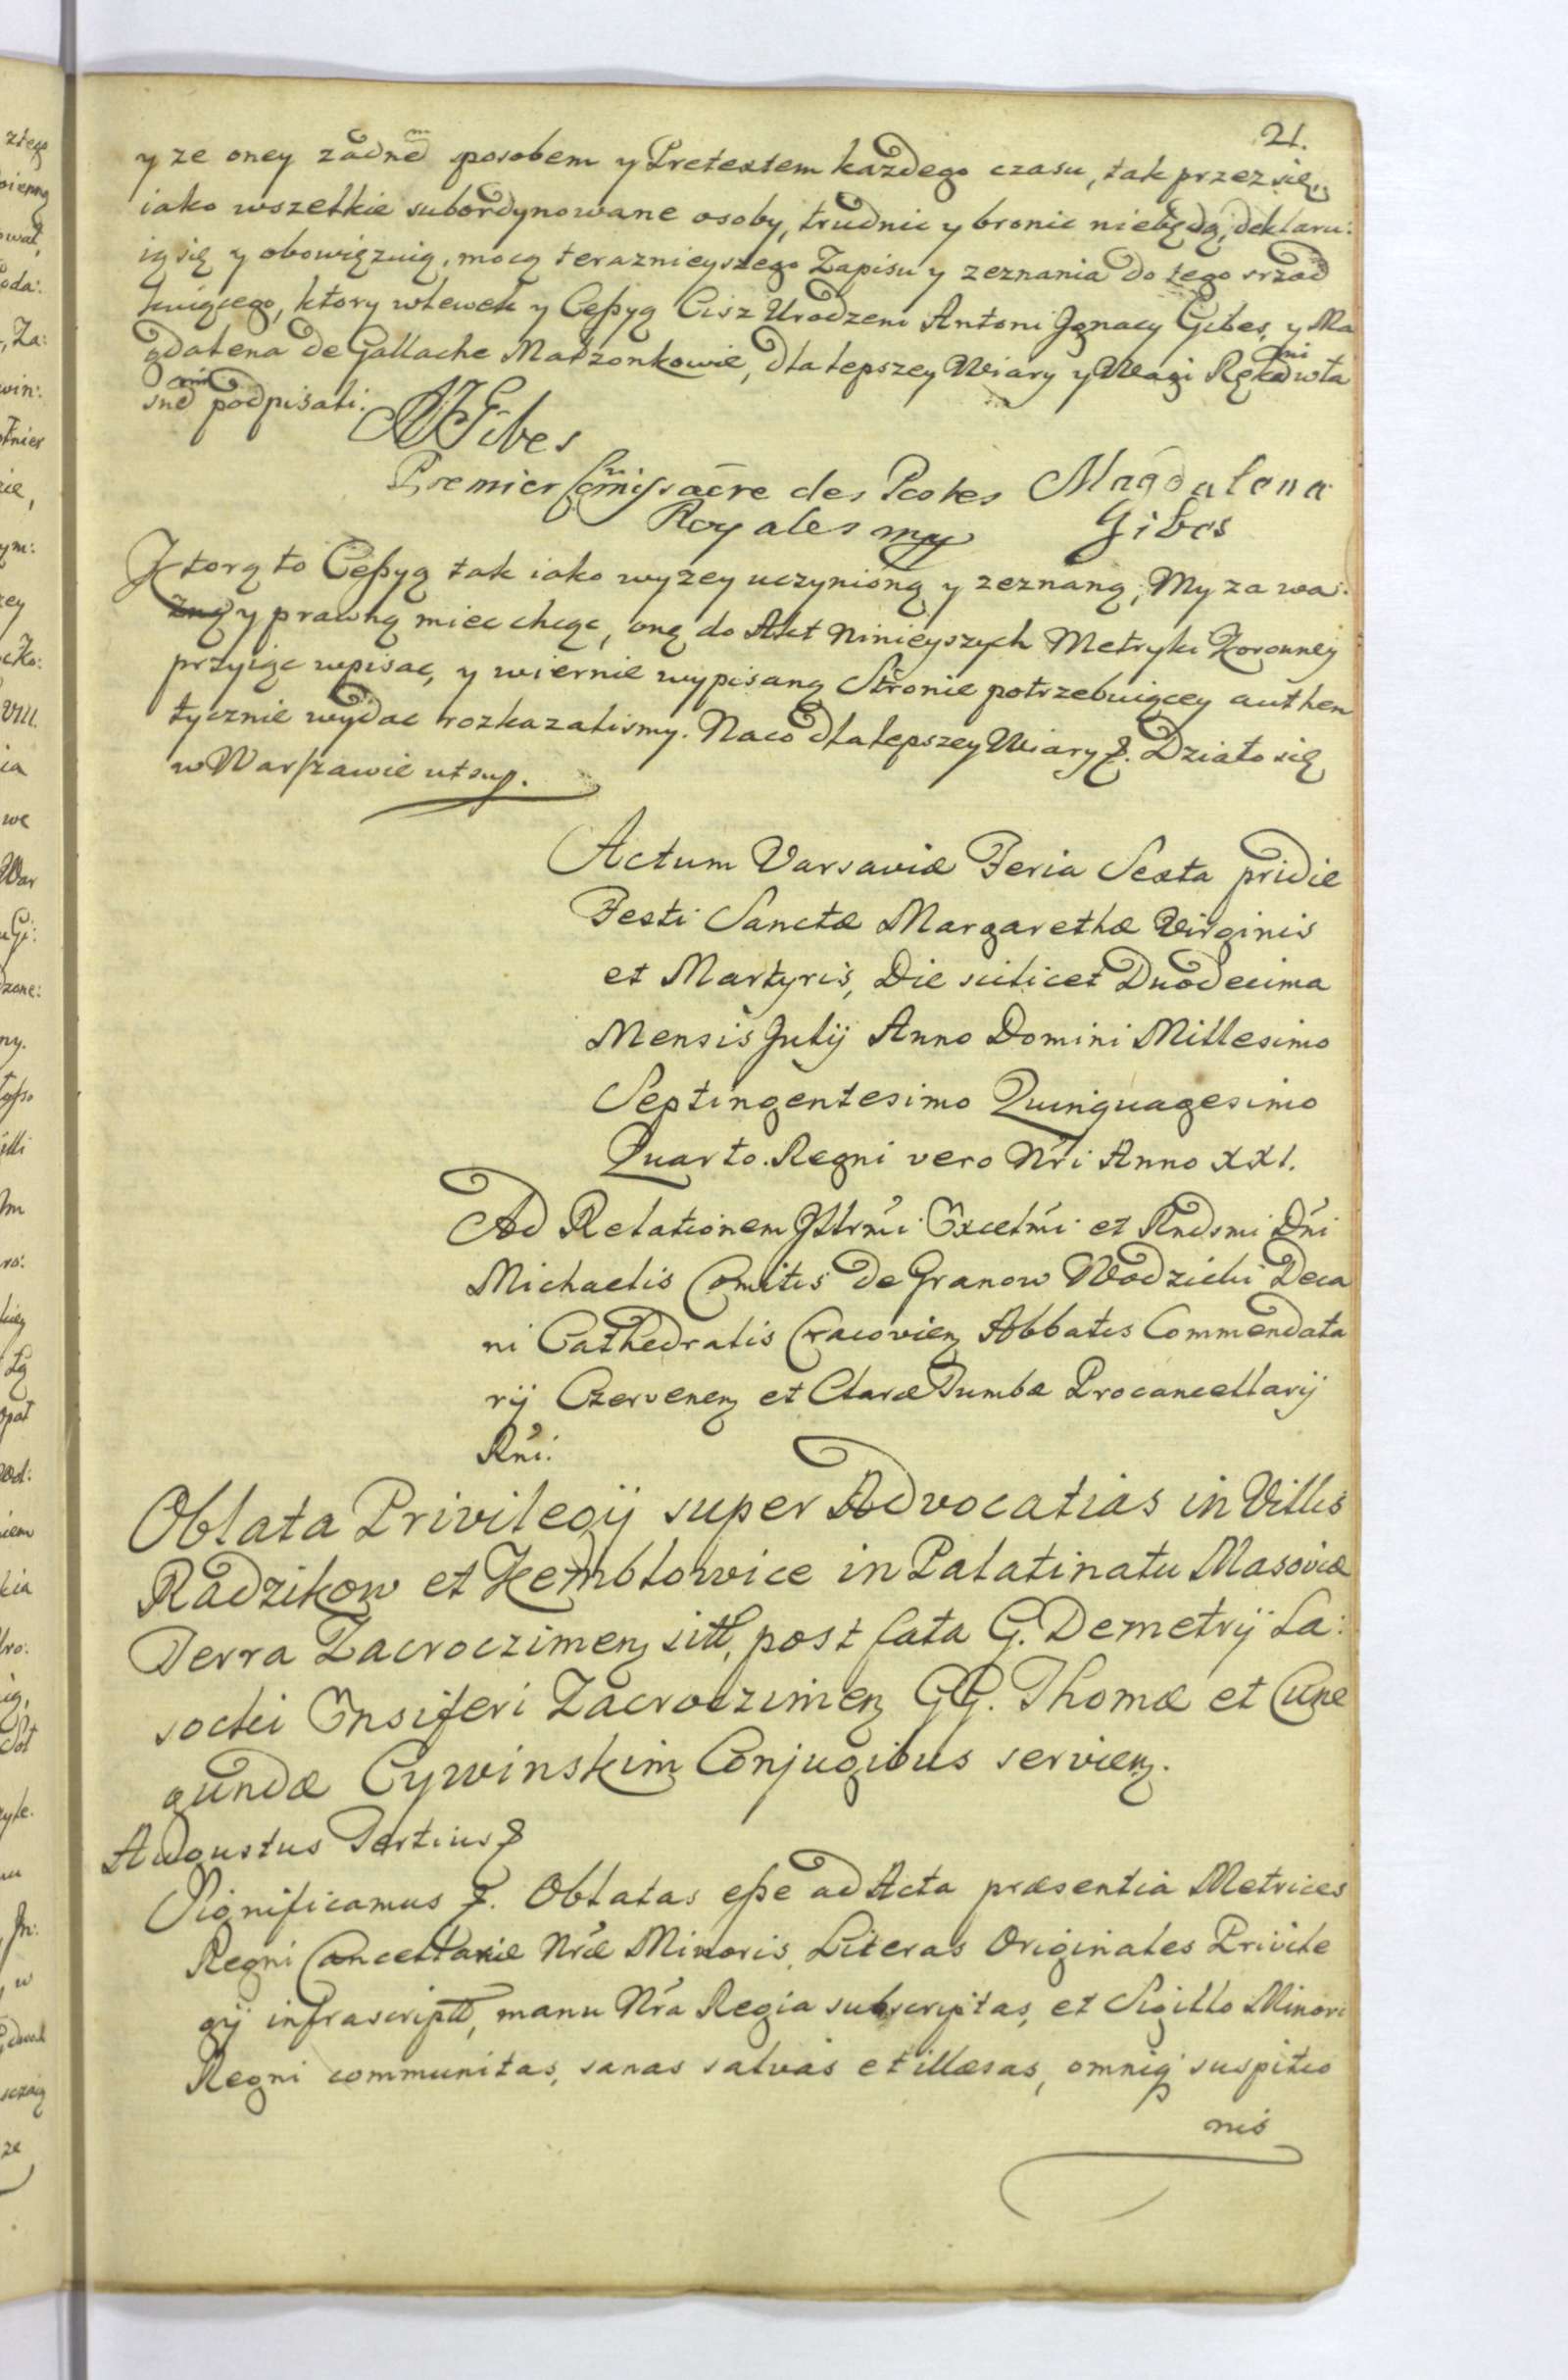 21.
y ze oney żadnem sposobem y Pretextem kazdego czasu, tak przez się,
iako wszelkie subordynowane osoby, trudnic y bronic niebędą, deklaru:
ią się y obowięzuią, mocą teraznieyszego Zapisu y zeznania do tego srzod
kuiącego, ktory wlewek y Ceßyą Cisz Urodzeni Antoni Jgnacy Gibes, y Ma
gdalena de Gallache Małzonkowie, dla lepszey Wiary y Wagi Rękami wła
snemi podpisali.
AJGibes
Premier Com̄issaire des Postes Magdalena
Royales mp Gibes
Ktorą to Ceßyą tak iako wyzey uczynioną y zeznaną, My za wa:
zną y prawną miec chcąc, oną do Akt Ninieyszych Metryki Koronney
przyiąc wpisac, y wiernie wypisaną Stronie potrzebuiącey authen
tycznie wydac rozkazalismy. Naco dla lepszey Wiary &. Działo się
w Warszawie ut sup.
Actum Varsaviæ Feria Sexta pridie
Festi Sanctæ Margarethæ Virginis
et Martyris, Die scilicet Duodecima
Mensis Julij Anno Domini Millesimo
Septingentesimo Quinquagesimo
Quarto. Regni vero Nr̃i Anno XXI.
Ad Relationem Jllrm̃i Excelm̃i et Rndsmi Dñi
Michaelis Comitis de Granow Wodzicki Deca
ni Cathedralis Cracovien Abbatis Commendata
rij Czervenen et Claræ Tumbæ Procancellarij
Rñi.
Oblata Privilegij super Advocatias in Villis
Radzikow et Kembłowice in Palatinatu Masoviæ
Terra Zacroczimen sitt, post fata G. Demetrij La:
socki Ensiferi Zacroczimen GG. Thomæ et Cune
gundæ Cywinskim Conjugibus servien.
Augustus Tertius &
Significamus &. Oblatas eße ad Acta præsentia Metrices
Regni Cancellariæ Nr̃æ Minoris, Literas Originales Privile
gij infrascriptt, manu Nr̃a Regia subscriptas, et Sigillo Minori
Regni communitas, sanas salvas et illæsas, omniq suspitio
nis